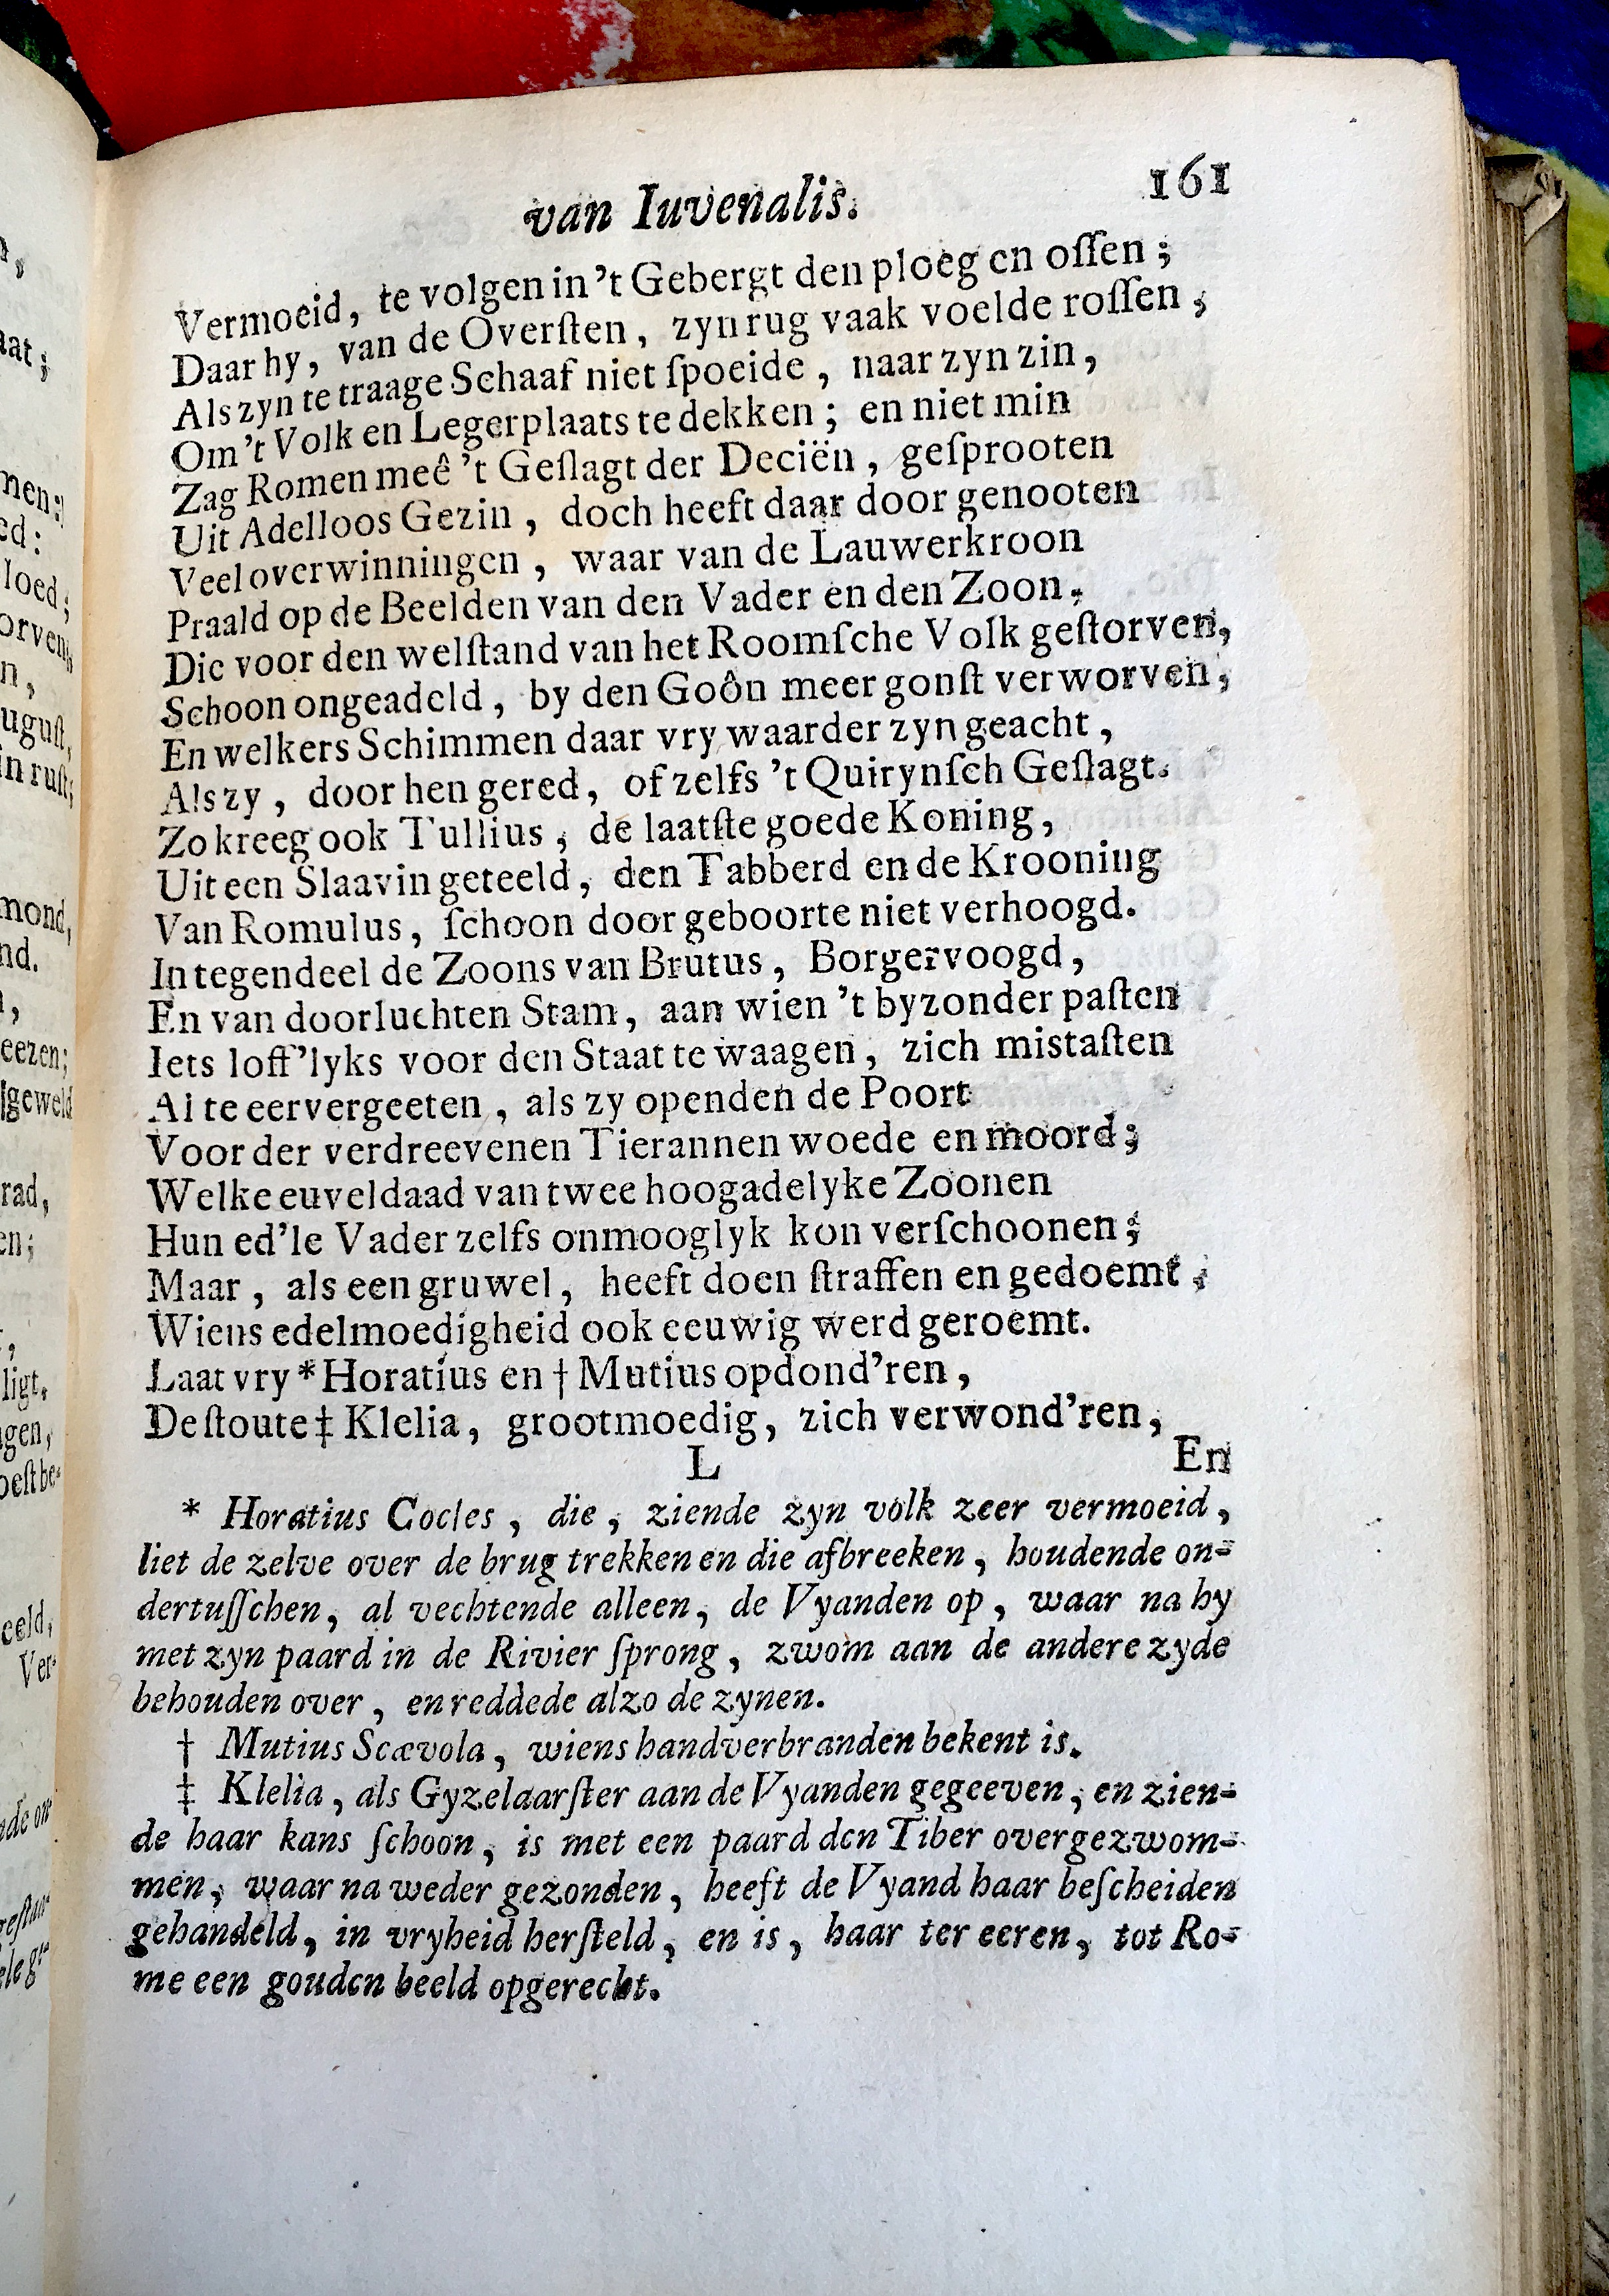 van Iuvenalis. 161
Vermoeid, te volgen in 't Gebergt den ploeg en oſſen;
Daar hy, van de Overſten, zyn rug vaak voelde roſſen,
Als zyn te traage Schaaf niet ſpoeide, naar zyn zin,
Om 't Volk en Legerplaats te dekken; en niet min
Zag Romen meê 't Geſlagt der Deciën, geſprooten
Uit Adelloos Gezin, doch heeft daar door genooten
Veel overwinningen, waar van de Lauwerkroon
Praald op de Beelden van den Vader en den Zoon,
Die voor den welſtand van het Roomſche Volk geſtorven,
Schoon ongeadeld, by den Goôn meer gonſt verworven,
En welkers Schimmen daar vry waarder zyn geacht,
Als zy, door hen gered, of zelfs 't Quirynſch Geſlagt.
Zo kreeg ook Tullius, de laatſte goede Koning,
Uit een Slaavin geteeld, den Tabberd en de Krooning
Van Romulus, ſchoon door geboorte niet verhoogd.
In tegendeel de Zoons van Brutus, Borgervoogd,
En van doorluchten Stam, aan wien 't byzonder paſten
Iets loff'lyks voor den Staat te waagen, zich mistaſten
Al te eervergeeten, als zy openden de Poort
Voor der verdreevenen Tierannen woede en moord;
Welke euveldaad van twee hoogadelyke Zoonen
Hun ed'le Vader zelfs onmooglyk kon verſchoonen;
Maar, als een gruwel, heeft doen ſtraffen en gedoemt,
Wiens edelmoedigheid ook eeuwig werd geroemt.
Laat vry * Horatius en † Mutius opdond'ren,
De ſtoute ‡ Klelia, grootmoedig, zich verwond'ren,
L En
* Horatius Cocles, die, ziende zyn volk zeer vermoeid,
liet de zelve over de brug trekken en die afbreeken, houdende on-
dertuſſchen, al vechtende alleen, de Vyanden op, waar na hy
met zyn paard in de Rivier ſprong, zwom aan de andere zyde
behouden over, en reddede alzo de zynen.
† Mutius Scævola, wiens handverbranden bekent is.
‡ Klelia, als Gyzelaarſter aan de Vyanden gegeeven, en zien-
de haar kans ſchoon, is met een paard den Tiber overgezwom-
men, waar na weder gezonden, heeft de Vyand haar beſcheiden
gehandeld, in vryheid herſteld, en is, haar ter eeren, tot Ro-
me een gouden beeld opgerecht.